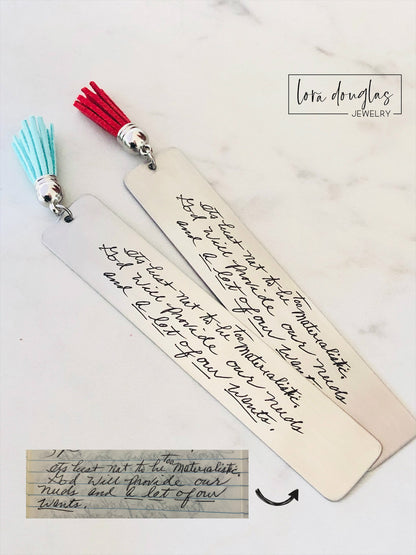 lora douglas
JEWELRY
Its best not to be too materialistic.
God will provide our needs
and a lot of our wants.
Its best not to be too materialistic.
God will provide our needs
and a lot of our wants.
Its best not to be too materialistic.
God will provide our
needs and a lot of our
wants.